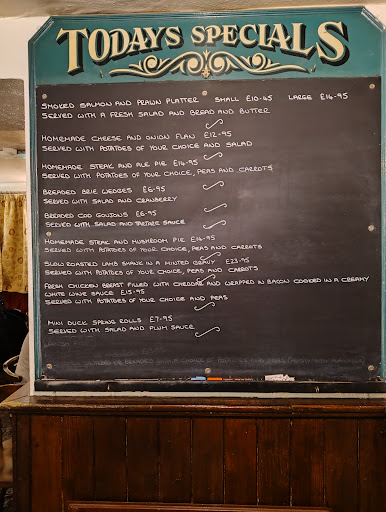 TODAYS SPECIALS
SMOKED SALMON AND PRAWN PLATTER SMALL £10-45 LARGE £14-95
SERVED WITH A FRESH SALAD AND BREAD AND BUTTER
HOMEMADE CHEESE AND ONION FLAN £12-95
SERVED WITH POTATOES OF YOUR CHOICE AND SALAD
HOMEMADE STEAK AND ALE PIE £14-95
SERVED WITH POTATOES OF YOUR CHOICE, PEAS AND CARROTS
BREADED BRIE WEDGES £6-95
SERVED WITH SALAD AND CRANBERRY
BREADED COD GOUJONS £6-95
SERVED WITH SALAD AND TARTARE SAUCE
HOMEMADE STEAK AND MUSHROOM PIE £14-95
SERVED WITH POTATOES OF YOUR CHOICE, PEAS AND CARROTS
SLOW ROASTED LAMB SHANK IN A MINTED GRAVY £23-95
SERVED WITH POTATOES OF YOUR CHOICE, PEAS AND CARROTS
FRESH CHICKEN BREAST FILLED WITH CHEDDAR AND WRAPPED IN BACON COOKED IN A CREAMY
WHITE WINE SAUCE £15-95
SERVED WITH POTATOES OF YOUR CHOICE AND PEAS
MINI DUCK SPRING ROLLS £7-95
SERVED WITH SALAD AND PLUM SAUCE